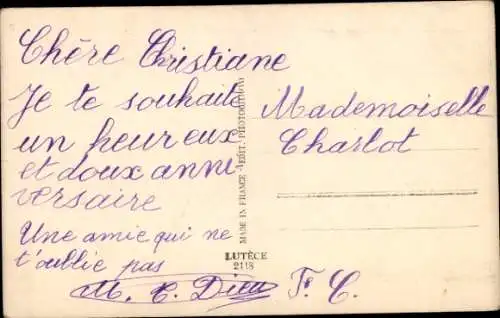 Chère Christiane
Je te souhaite
un heureux
et doux anni
versaire
Une amie qui ne
t'oublie pas
M. C. Dieu
Mademoiselle
Charlot
F. C.
MADE IN FRANCE
LUTÈCE
2118